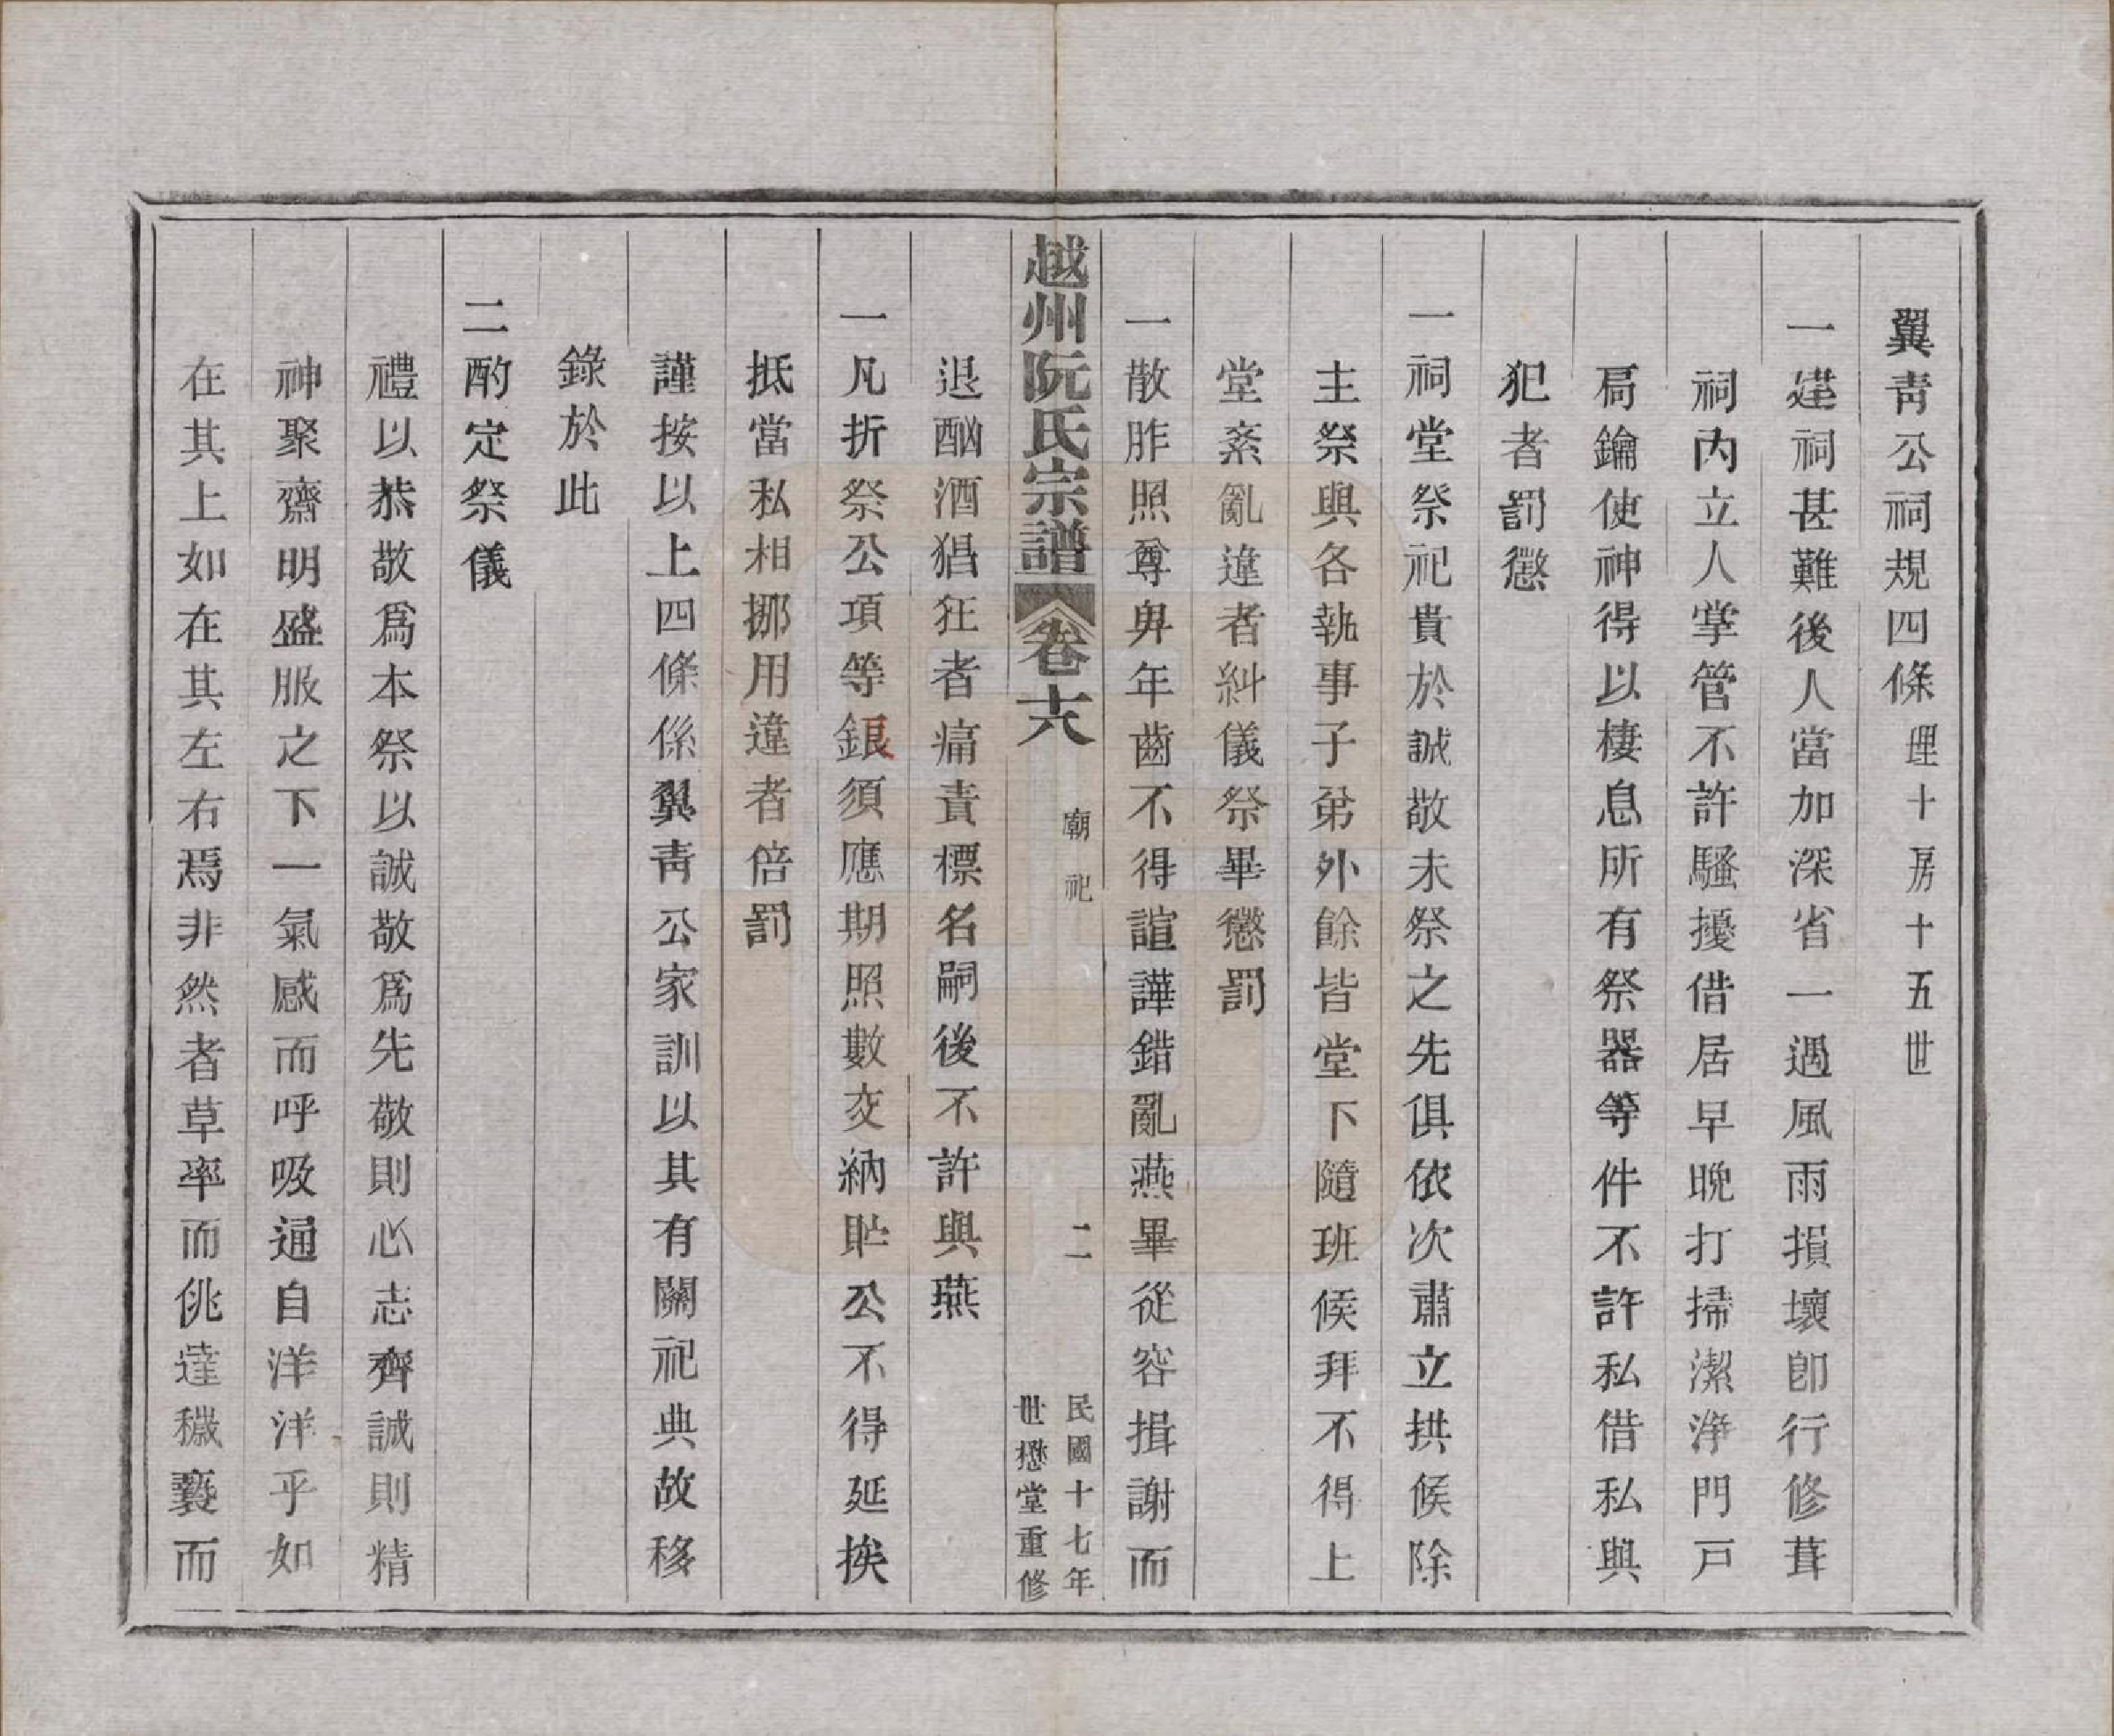 翼青公祠規四條理十房十五世
一建祠甚難後人當加深省一遇風雨損壞卽行修葺
祠內立人掌管不許騷擾借居早晚打掃潔淨門戸
扃鑰使神得以棲息所有祭器等件不許私借私與
犯者罰懲
一祠堂祭祀貴於誠敬未祭之先俱依次肅立拱候除
主祭與各執事子弟外餘皆堂下隨班候拜不得上
堂紊亂違者糾儀祭畢懲罰
一散胙照尊卑年齒不得諠譁錯亂燕畢從容揖謝而
越州阮氏宗譜 卷十六 廟祀 二 民國十七年
世懋堂重修
退酗酒猖狂者痛責標名嗣後不許與燕
一凡折祭公項等銀須應期照數交納貯公不得延挨
抵當私相挪用違者倍罰
謹按以上四條係翼青公家訓以其有關祀典故移
錄於此
二酌定祭儀
禮以恭敬爲本祭以誠敬爲先敬則心志齊誠則精
神聚齋明盛服之下一氣感而呼吸通自洋洋乎如
在其上如在其左右焉非然者草率而佻達穢褻而